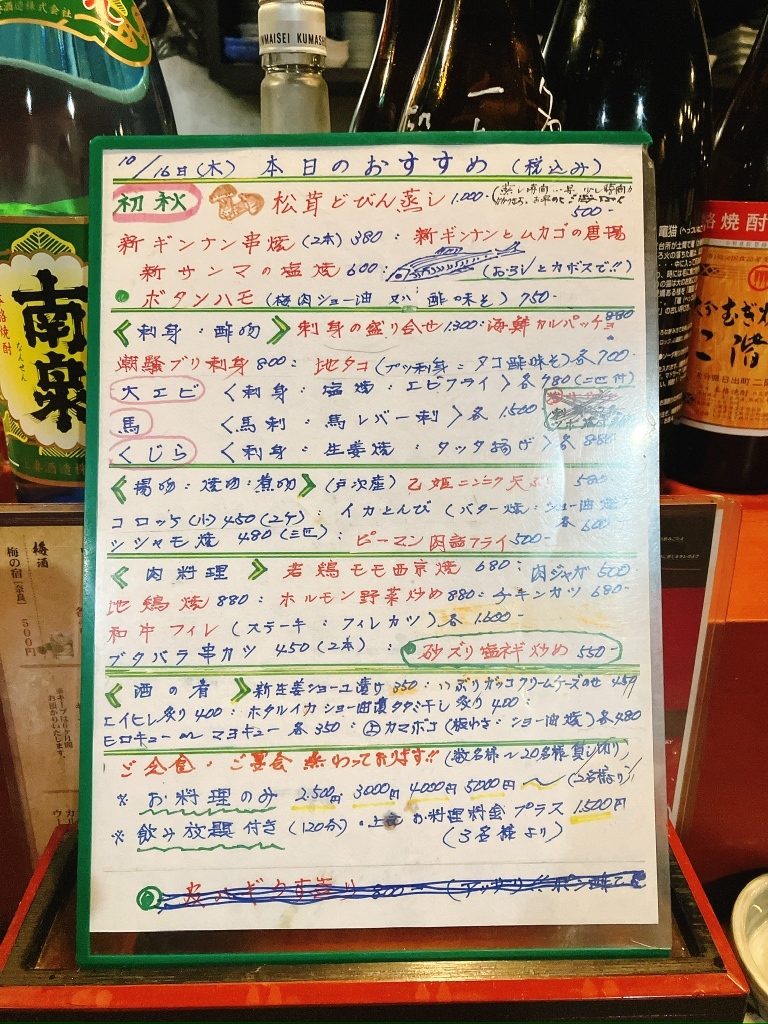 NMAISEI KUMASH
10/16日(木) 本日のおすすめ (税込み)
初秋 松茸どびん蒸し 1.000-
500-
新ギンナン串焼(2本)380: 新ギンナンとムカゴの唐揚
新サンマの塩焼 600: (おろしとカボスで!!)
ボタンハモ (梅肉ショー油 又ハ 酢味そ) 750-
《刺身:酢物》刺身の盛り合せ1300:海鮮カルパッチョ 880
潮騒ブリ刺身 800: 地タコ(ブツ刺身:タコ酢味そ)各700-
大エビ 〈刺身:塩焼:エビフライ〉各780(二匹付)
馬 〈馬刺:馬レバー刺〉各1.500
くじら 〈刺身:生姜焼:タッタ揚げ〉各880-
《揚物:焼物:煮物》(戸次産) 乙姫ニンニク天ぷら 580
コロッケ(小)450(2ケ): イカとんび(バター焼:ショー油焼 各600
シシャモ焼 480(三匹): ピーマン肉詰フライ500-
《肉料理》若鶏モモ西京焼 680: 肉ジャガ500-
地鶏焼880: ホルモン野菜炒め880: チキンカツ680-
和牛フィレ(ステーキ:フィレカツ)各1.600-
ブタバラ串カツ 450(2本): 砂ズリ塩祥炒め 550-
《酒の肴》新生姜ショーユ漬け350: いぶりガッコクリームチーズのせ 450
エイヒレ炙り400: ホタルイカショー油漬タタミ干し炙り400:
モロキュー〜マヨキュー各350: 上カマボコ(板わさ:ショー油焼)各480
ご会食・ご宴会 賜わっております!!(数名様〜20名様貸し切り)
※お料理のみ 2.500円 3000円 4000円 5000円〜(2名様より)
※飲み放題付き(120分)・上記お料理料金プラス1.500円
(3名様より)
南泉
なんせん
本格焼酎
格焼酎
むぎ焼
二階
梅酒
梅の宿[奈良]
500円